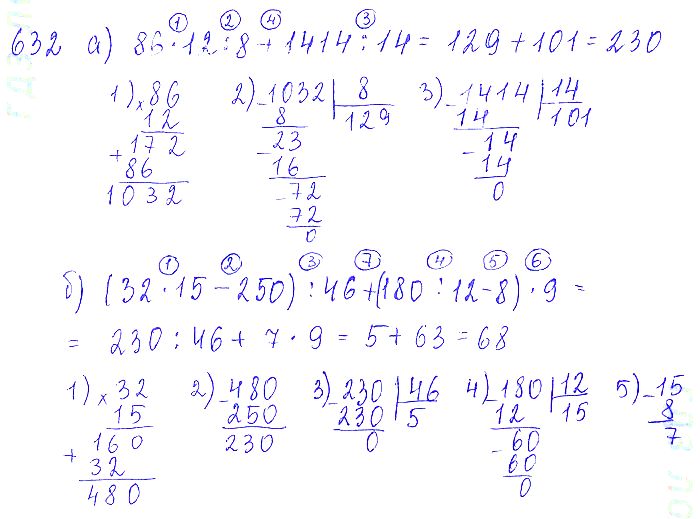 ① ② ④ ③
632 а) 86·12:8+1414:14=129+101=230
1) ×86 2) -1032 | 8 3) -1414 | 14
12 8 129 14 101
+172 -23 -14
86 16 14
1032 -72 0
72
0
① ② ③ ⑦ ④ ⑤ ⑥
б) (32·15-250):46+(180:12-8)·9=
= 230:46+7·9=5+63=68
1) ×32 2) -480 3) -230 | 46 4) -180 | 12 5) -15
15 250 230 5 12 15 8
+160 230 0 -60 7
32 60
480 0